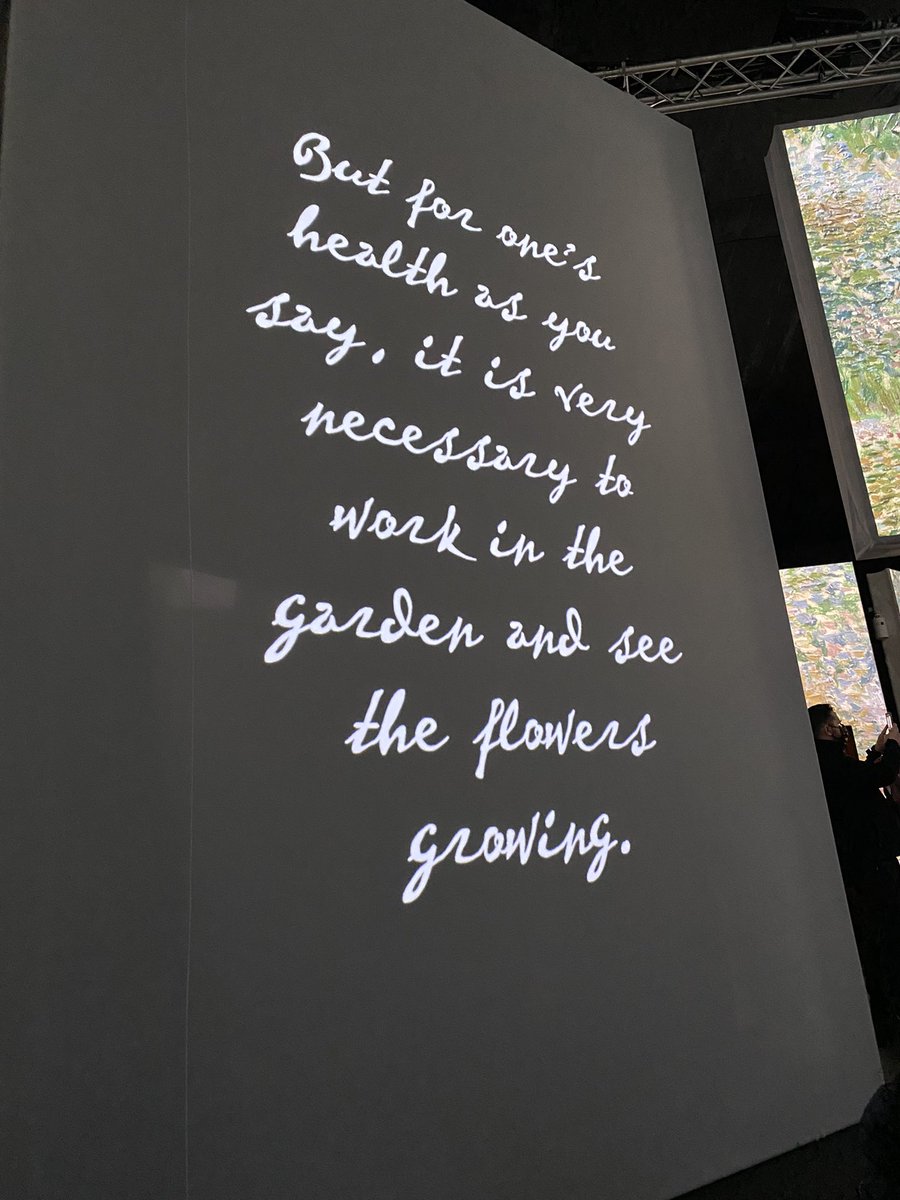 But for one's
health as you
say, it is very
necessary to
work in the
garden and see
the flowers
growing.